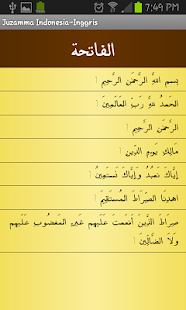 7:49 PM
Juzamma Indonesia-Inggris
الفاتحة
بِسمِ اللَّهِ الرَّحمَنِ الرَّحِيمِ
الحَمدُ لِلَّهِ رَبِّ العَالَمِينَ
الرَّحمَنِ الرَّحِيمِ
مَالِكِ يَومِ الدِّينِ
إِيَّاكَ نَعبُدُ وَإِيَّاكَ نَستَعِينُ
اهدِنَا الصِّرَاطَ المُستَقِيمَ
صِرَاطَ الَّذِينَ أَنعَمتَ عَلَيهِم غَيرِ المَغضُوبِ عَلَيهِم
وَلَا الضَّالِّينَ